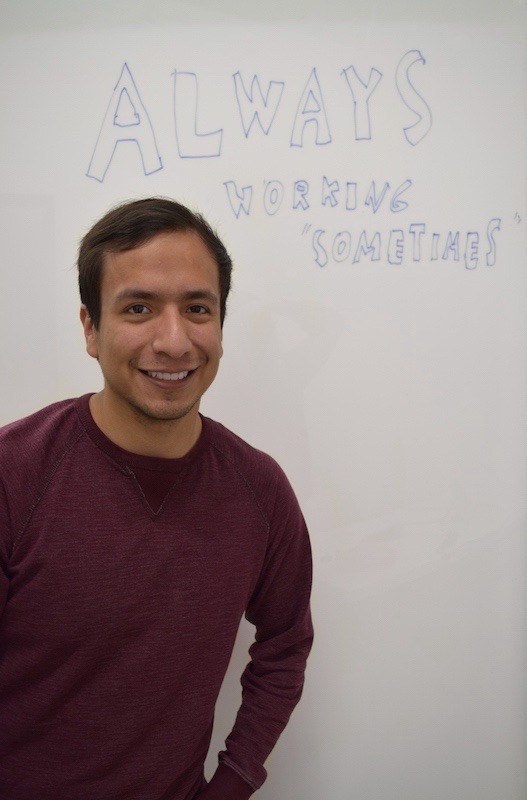 ALWAYS
WORKING
"SOMETIMES"